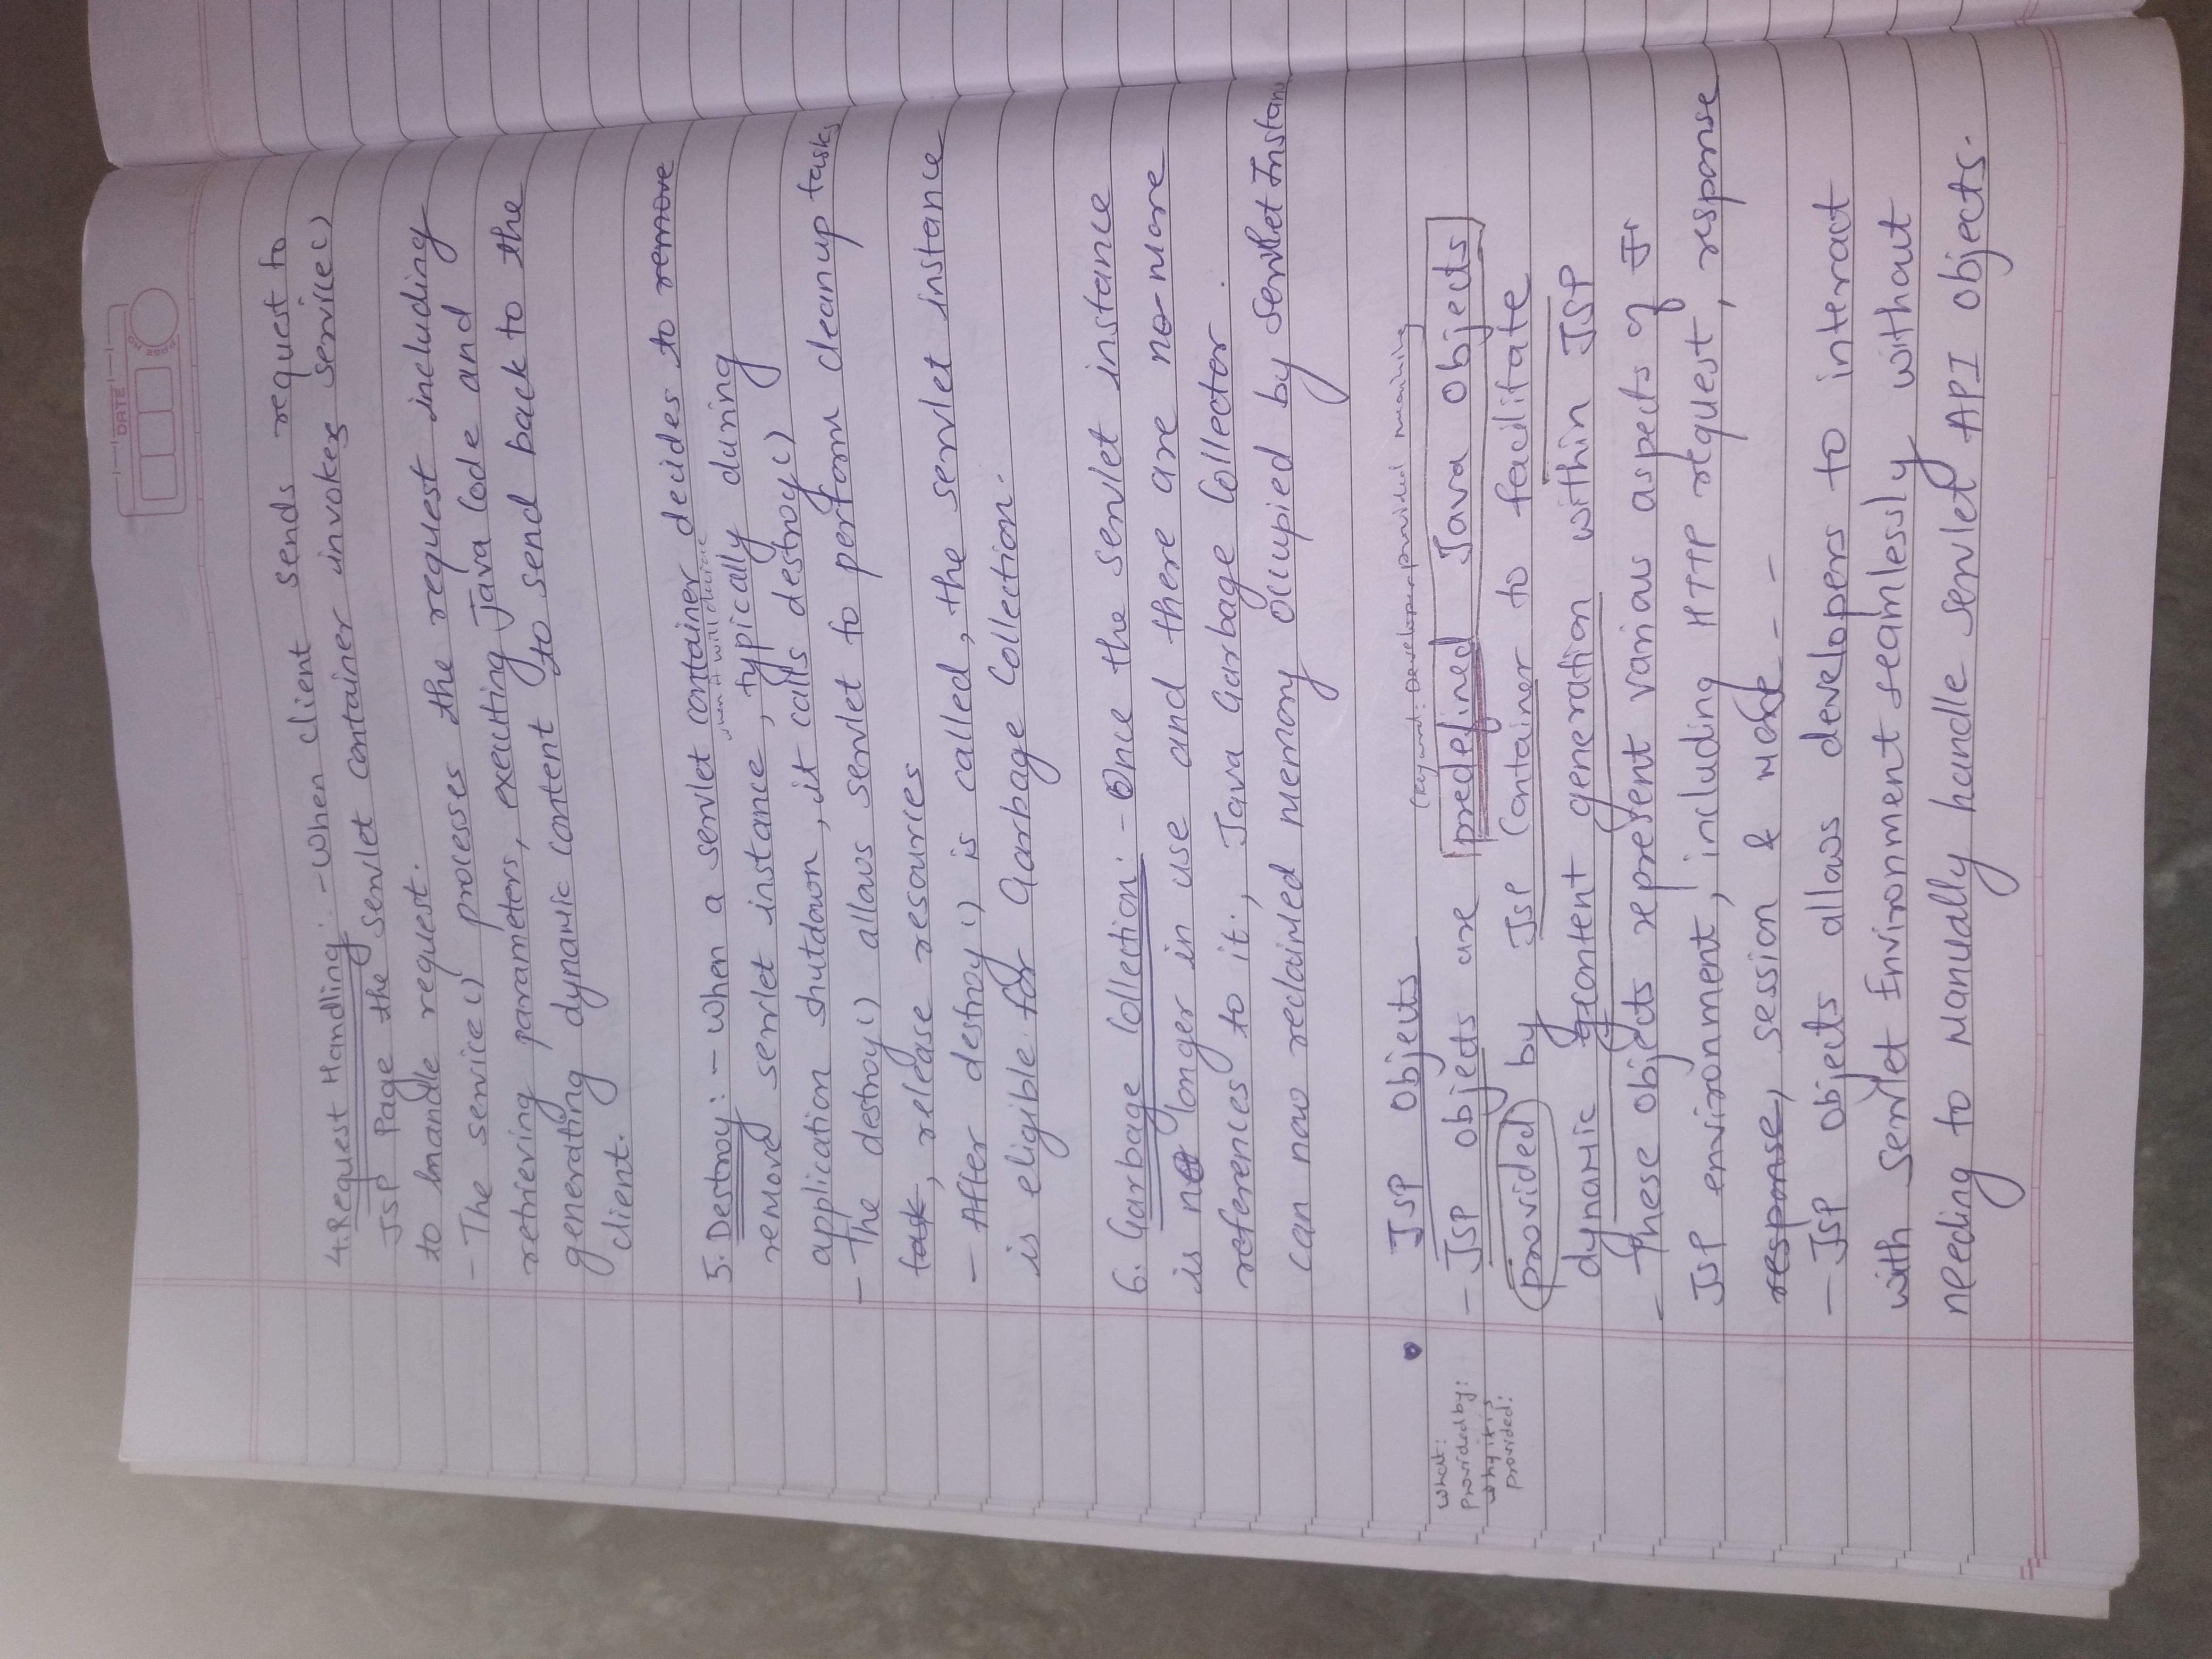 DATE
PAGE NO
4. Request Handling: - When client sends request to
JSP Page the servlet container invokes service()
to handle request.
- The service() processes the request including
retrieving parameters, executing Java Code and
generating dynamic content to send back to the
client.
5. Destroy: - When a servlet container decides to remove
when it will decide
remove servlet instance, typically during
application shutdown, it calls destroy()
- The destroy() allows servlet to perform cleanup tasks
task, release resources
- After destroy() is called, the servlet instance
is eligible for Garbage Collection.
6. Garbage Collection: - Once the servlet instance
is no longer in use and there are no more
references to it, Java Garbage Collector.
can now reclaimed memory occupied by Servlet Instan
JSP Objects
(Keyword: Developer provided meaning
- JSP objects are predefined Java Objects
what:
provided by:
why it is
provided:
provided by JSP Container to facilitate
dynamic content generation within JSP
- These objects represent various aspects of
JSP environment, including HTTP request, response
response, session & more - -
- JSP objects allows developers to interact
with Servlet Environment seamlessly without
needing to manually handle servlet API objects.